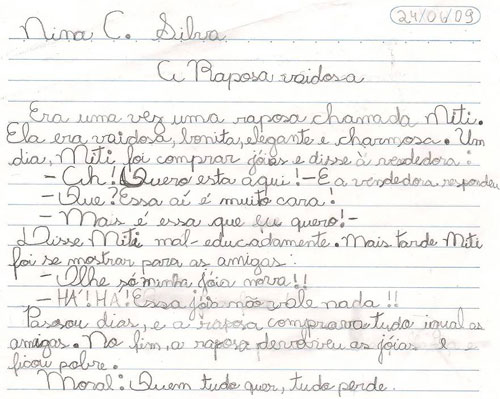 24/06/09
Nina C. Silva
A Raposa vaidosa
Era uma vez uma raposa chamada Miti.
Ela era vaidosa, bonita, elegante e charmosa. Um
dia, Miti foi comprar jóias e disse à vendedora:
- Ah! Quero esta aqui! - E a vendedora respondeu
- Que? Essa aí é muito cara!
- Mais é essa que eu quero! -
Disse Miti mal-educadamente. Mais tarde Miti
foi se mostrar para as amigas:
- Olhe só minha jóia nova!!
- HÁ! HA! Essa jóia não vale nada!!
Passou dias, e a raposa comprava tudo igual as
amigas. No fim, a raposa devolveu as jóias e
ficou pobre.
Moral: Quem tudo quer, tudo perde.